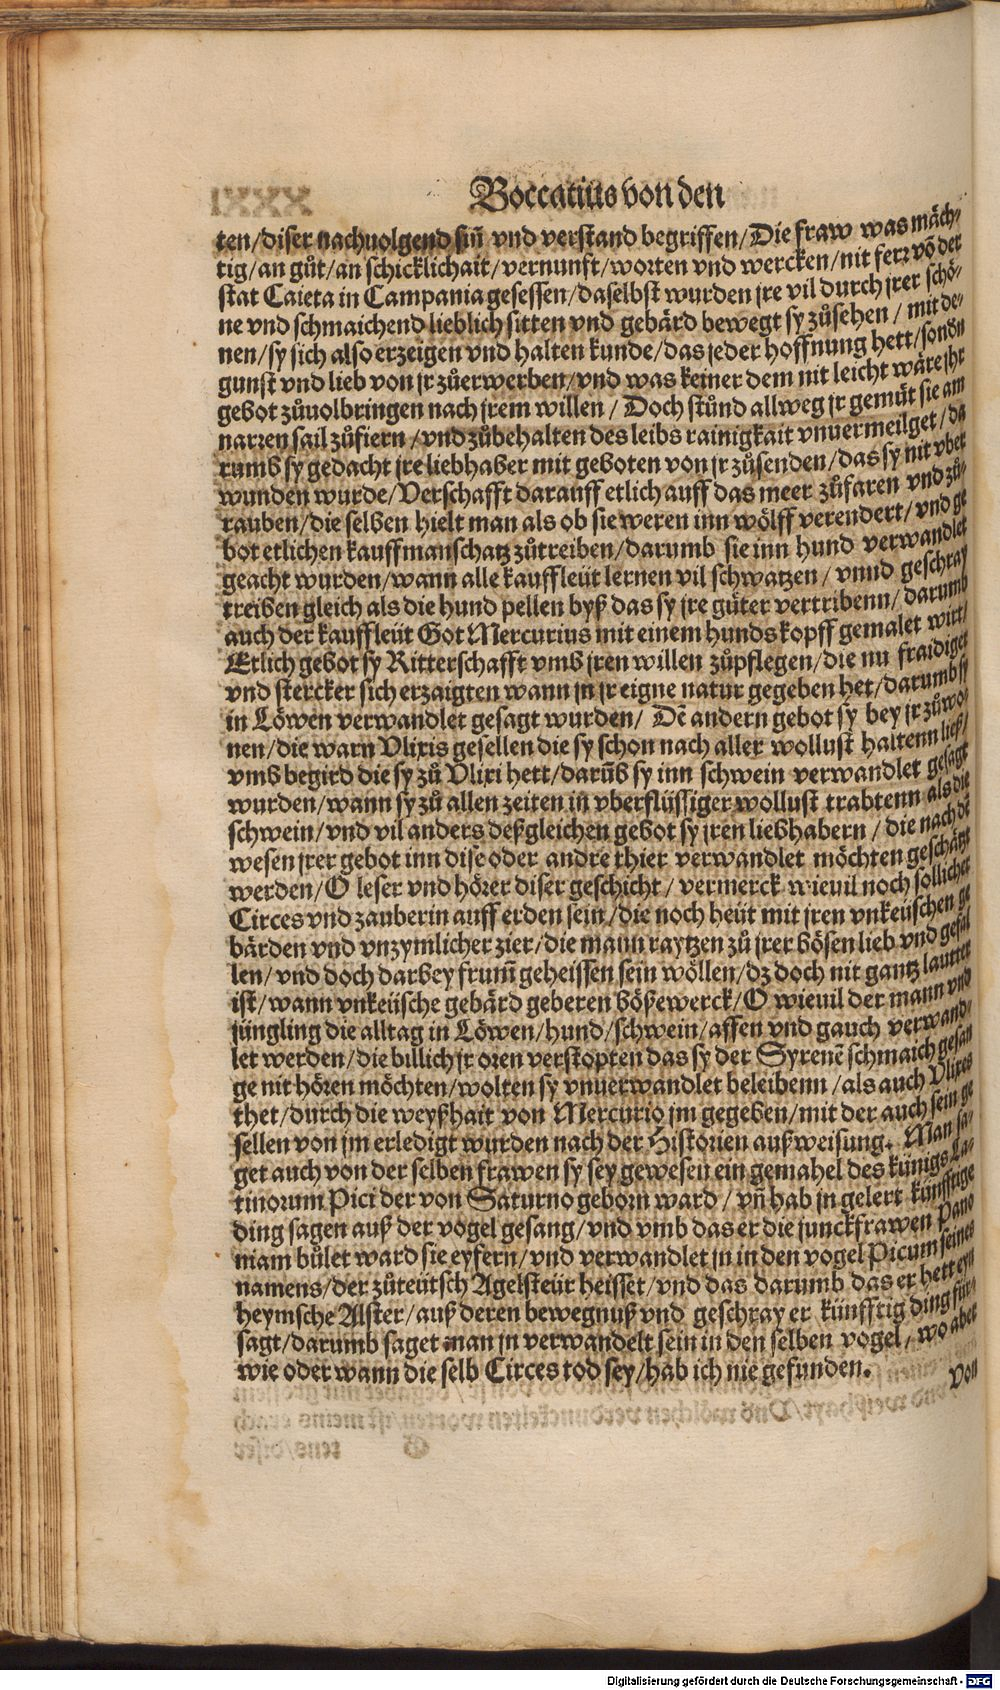 Boccatius von den
ten/diser nachuolgend siñ vnd verstand begriffen/Die fraw was mäch-
tig/an gůt/an schicklichait/vernunft/worten vnd wercken/nit ferr võ der
stat Caieta in Campania gesessen/daselbst wurden jre vil durch jrer schö-
ne vnd schmaichend lieblich sitten vnd gebärd bewegt sy zůsehen/mit de-
nen/sy sich also erzeigen vnd halten kunde/das jeder hoffnung hett/sondn
gunst vnd lieb von jr zůerwerben/vnd was keiner dem nit leicht wäre jhr
gebot zůuolbringen nach jrem willen/Doch stůnd allweg jr gemüt sie am
narren sail zůfiern/vnd zůbehalten des leibs rainigkait vnuermeilget/da
rumb sy gedacht jre liebhaber mit geboten von jr zůsenden/das sy nit vber
wunden wurde/Verschafft darauff etlich auff das meer zůfaren vnd zů-
rauben/die selben hielt man als ob sie weren inn wölff verendert/vnd ge
bot etlichen kauffmanschatz zůtreiben/darumb sie inn hund verwandlet
geacht wurden/wann alle kauffleüt lernen vil schwatzen/vnnd geschray
treiben gleich als die hund pellen byß das sy jre güter vertribenn/darumb
auch der kauffleüt Got Mercurius mit einem hundskopff gemalet wirt/
Etlich gebot sy Ritterschafft vmb jren willen zůpflegen/die nu fraidiger
vnd stercker sich erzaigten wann jn jr eigne natur gegeben het/darumb sy
in Löwen verwandlet gesagt wurden/Dẽ andern gebot sy bey jr zůwo-
nen/die warn Vlixis gesellen die sy schon nach aller wollust haltenn ließ/
vmb begird die sy zů Vlixi hett/darũb sy inn schwein verwandlet gesagt
wurden/wann sy zů allen zeiten in vberflüssiger wollust trabtenn als die
schwein/vnd vil anders deßgleichen gebot sy jren liebhabern/die nach dẽ
wesen jrer gebot inn dise oder andre thier verwandlet möchten geschätzt
werden/O leser vnd hörer diser geschicht/vermerck wieuil noch sollicher
Circes vnd zauberin auff erden sein/die noch heüt mit jren vnkeüschen ge
bärden vnd vnzymlicher zier/die mann raytzen zů jrer bösen lieb vnd gefal
len/vnd doch darbey frum̃ geheissen sein wöllen/dz doch nit gantz lautter
ist/wann vnkeüsche gebärd geberen bößewerck/O wieuil der mann vnd
jüngling die alltag in Löwen/hund/schwein/affen vnd gauch verwand-
let werden/die billich jr oren verstopten das sy der Syrenẽ schmaich gesan
ge nit hören möchten/wolten sy vnuerwandlet beleibenn/als auch Vlixes
thet/durch die weyßhait von Mercurio jm gegeben/mit der auch sein ge
sellen von jm erledigt wurden nach der Historien außweisung. Man sa-
get auch von der selben frawen sy sey gewesen ein gemahel des künigs La-
tinorum Pici der von Saturno geborn ward/vñ hab jn gelert künfftige
ding sagen auß der vogel gesang/vnd vmb das er die junckfrawen Pano
niam bůlet ward sie eyfern/vnd verwandlet jn in den vogel Picum seines
namens/der zůteütsch Agelsteür heisset/vnd das darumb das er hett eyn
heymsche Alster/auß deren bewegnuß vnd geschray er künfftig ding für-
sagt/darumb saget man jn verwandelt sein in den selben vogel/wo aber
wie oder wann die selb Circes tod sey/hab ich nie gefunden.
Von
Digitalisierung gefördert durch die Deutsche Forschungsgemeinschaft - DFG